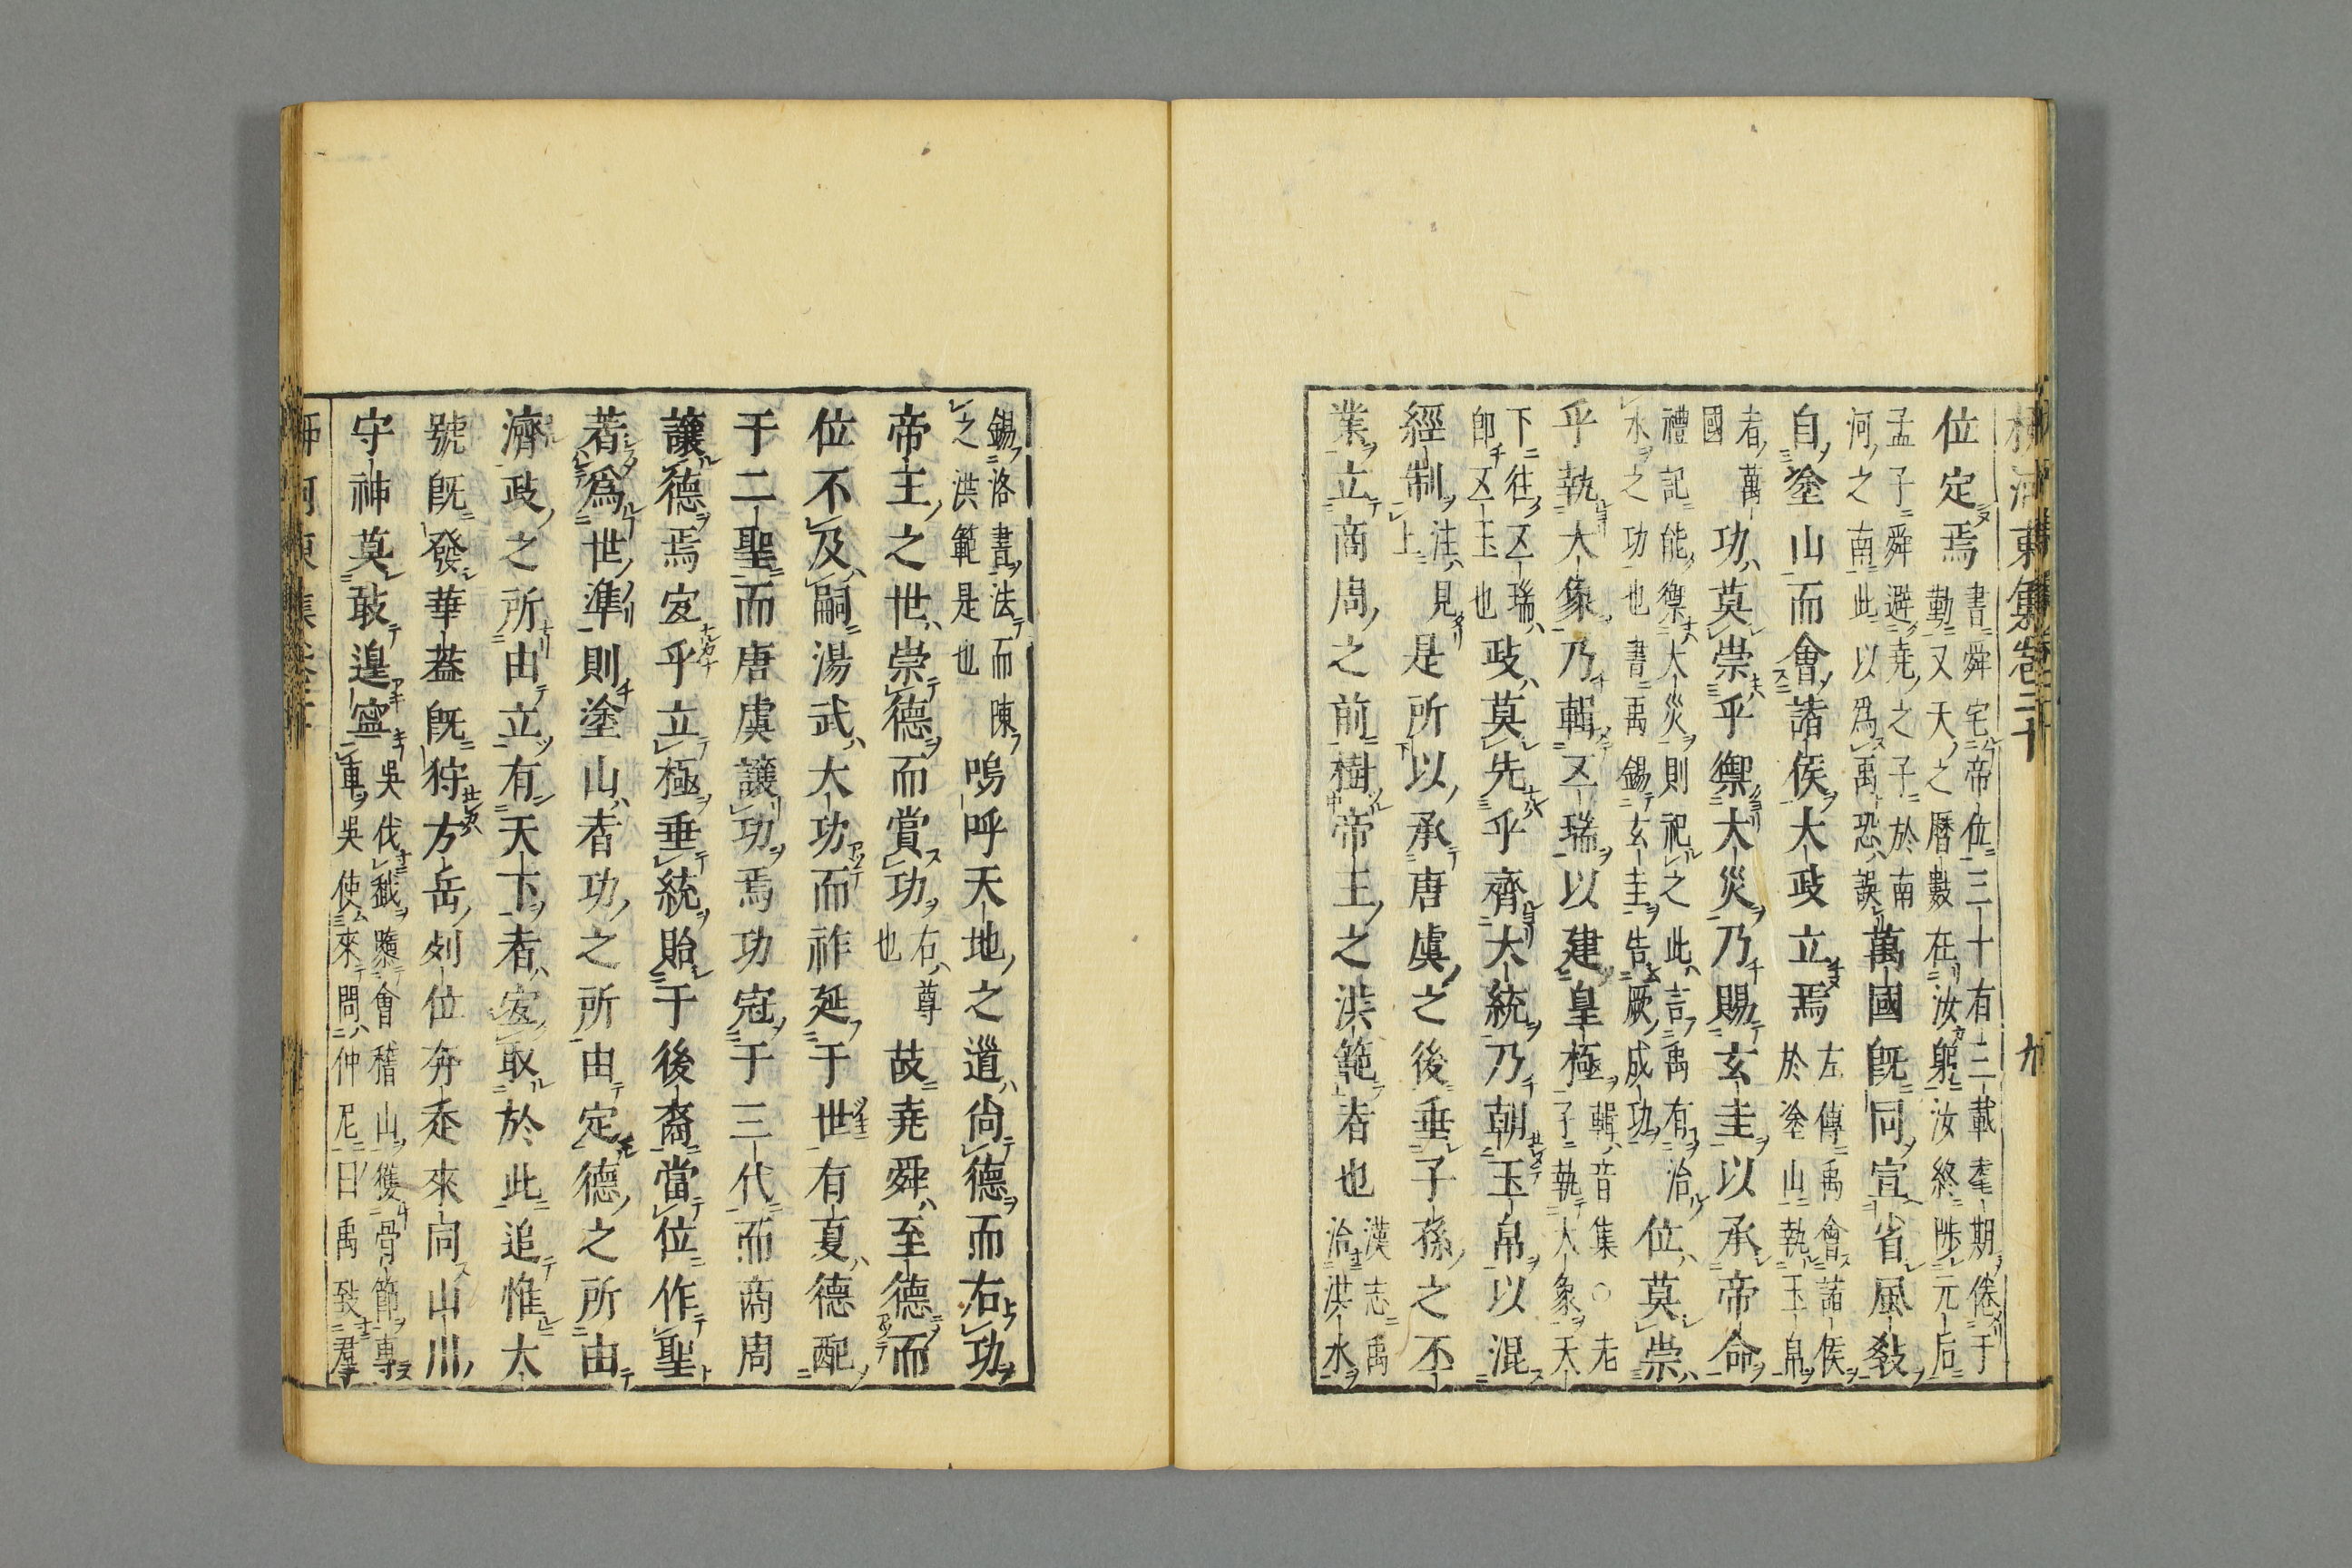 柳河東集卷二十　九
位定焉
書舜宅帝位三十有三載耄期倦于
勤又天之曆數在汝躬汝終陟元后
孟子舜避堯之子於南
河之南此以爲禹恐誤
萬國既同宣省風敎
自塗山而會諸侯大政立焉
左傳禹會諸侯
於塗山執玉帛
者萬
國
功莫崇乎禦大災乃賜玄圭以承帝命
禮記能禦大災則祀之此言禹有治
水之功也書禹錫玄圭告厥成功
位莫崇
乎執大象乃輯五瑞以建皇極
輯音集○老
子執大象天
下往五瑞
卽五玉也
政莫先乎齊大統乃朝玉帛以混
經制
法見
上
是所以承唐虞之後垂子孫之丕
業立商周之前樹帝王之洪範者也
漢志禹
治洪水
錫洛書法而陳
之洪範是也
嗚呼天地之道尚德而右功
帝王之世崇德而賞功
右尊
也
故堯舜至德而
位不及嗣湯武大功而祚延于世有夏德配
于二聖而唐虞讓功焉功冠于三代而商周
讓德焉宜乎立極垂統貽于後裔當位作聖
著爲世準則塗山者功之所由定德之所由
濟政之所由立有天下者宜取於此追惟大
號既發華蓋既狩方岳列位奔走來同山川
守神莫敢遑寧
吳伐越隳會稽山獲骨節專
車吳使來問仲尼曰禹致羣